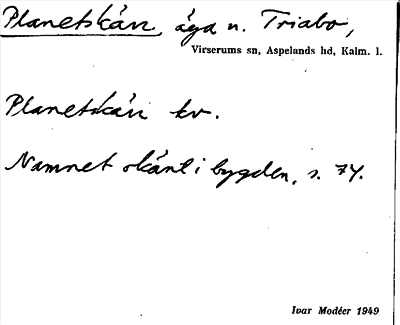 Planetskär, äga n. Triabo,
Virserums sn, Aspelands hd, Kalm. l.
Planetskär kv.
Namnet okänt i bygden, s. 74.
Ivar Modéer 1949